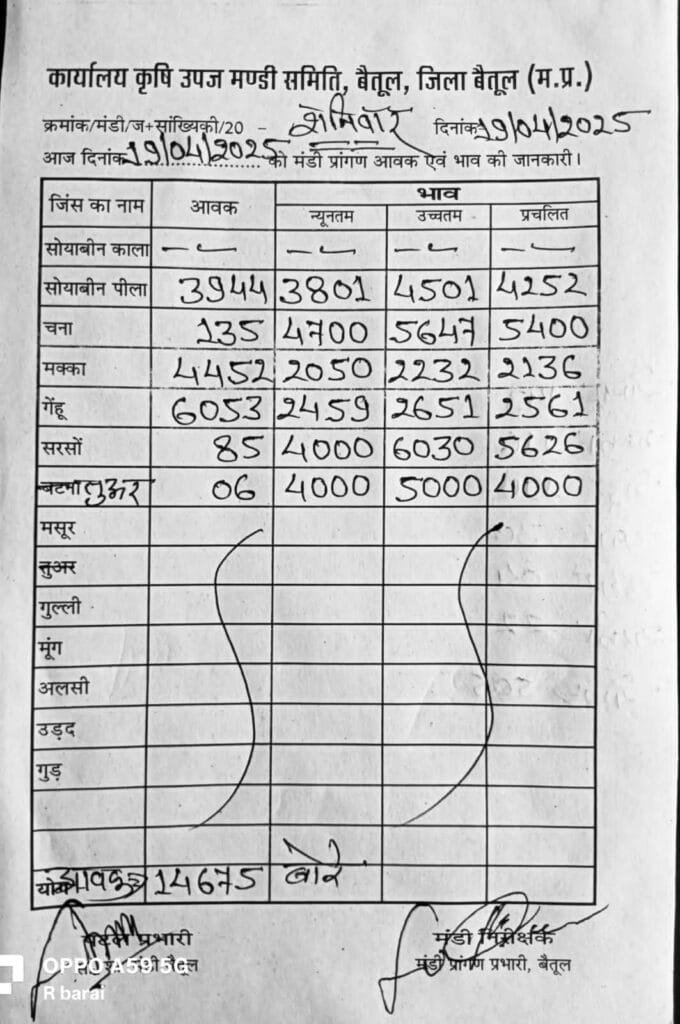 कार्यालय कृषि उपज मण्डी समिति, बैतूल, जिला बैतूल (म.प्र.)
क्रमांक/मंडी/ज+सांख्यिकी/20 - शनिवार दिनांक 19/04/2025
आज दिनांक 19/04/2025 को मंडी प्रांगण आवक एवं भाव की जानकारी।
जिंस का नाम आवक भाव
न्यूनतम उच्चतम प्रचलित
सोयाबीन काला - - - -
सोयाबीन पीला 3944 3801 4501 4252
चना 135 4700 5647 5400
मक्का 4452 2050 2232 2136
गेंहू 6053 2459 2651 2561
सरसों 85 4000 6030 5626
बटना तुअर 06 4000 5000 4000
मसूर
तुअर
गुल्ली
मूंग
अलसी
उड़द
गुड़
आवक 14675 बोरे
प्रभारी मंडी निरीक्षक
बैतूल मंडी प्रांगण प्रभारी, बैतूल
OPPO A59 5G
R barai